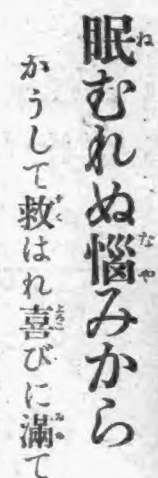 眠むれぬ悩みから
かうして救はれ喜びに滿て